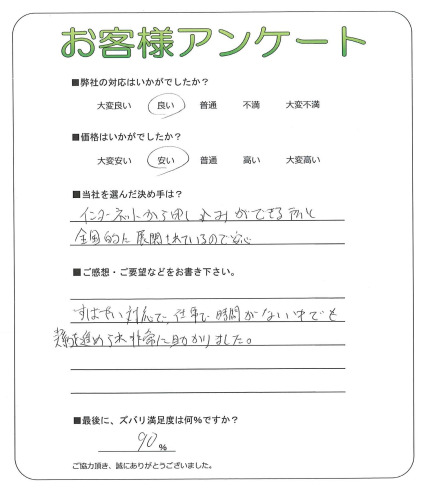 お客様アンケート
■弊社の対応はいかがでしたか？
大変良い 良い 普通 不満 大変不満
■価格はいかがでしたか？
大変安い 安い 普通 高い 大変高い
■当社を選んだ決め手は？
インターネットから申し込みができる所と
全国的に展開されているので安心
■ご感想・ご要望などをお書き下さい。
すばやい対応で、仕事で時間がない中でも
を進められ非常に助かりました。
■最後に、ズバリ満足度は何％ですか？
90 %
ご協力頂き、誠にありがとうございました。